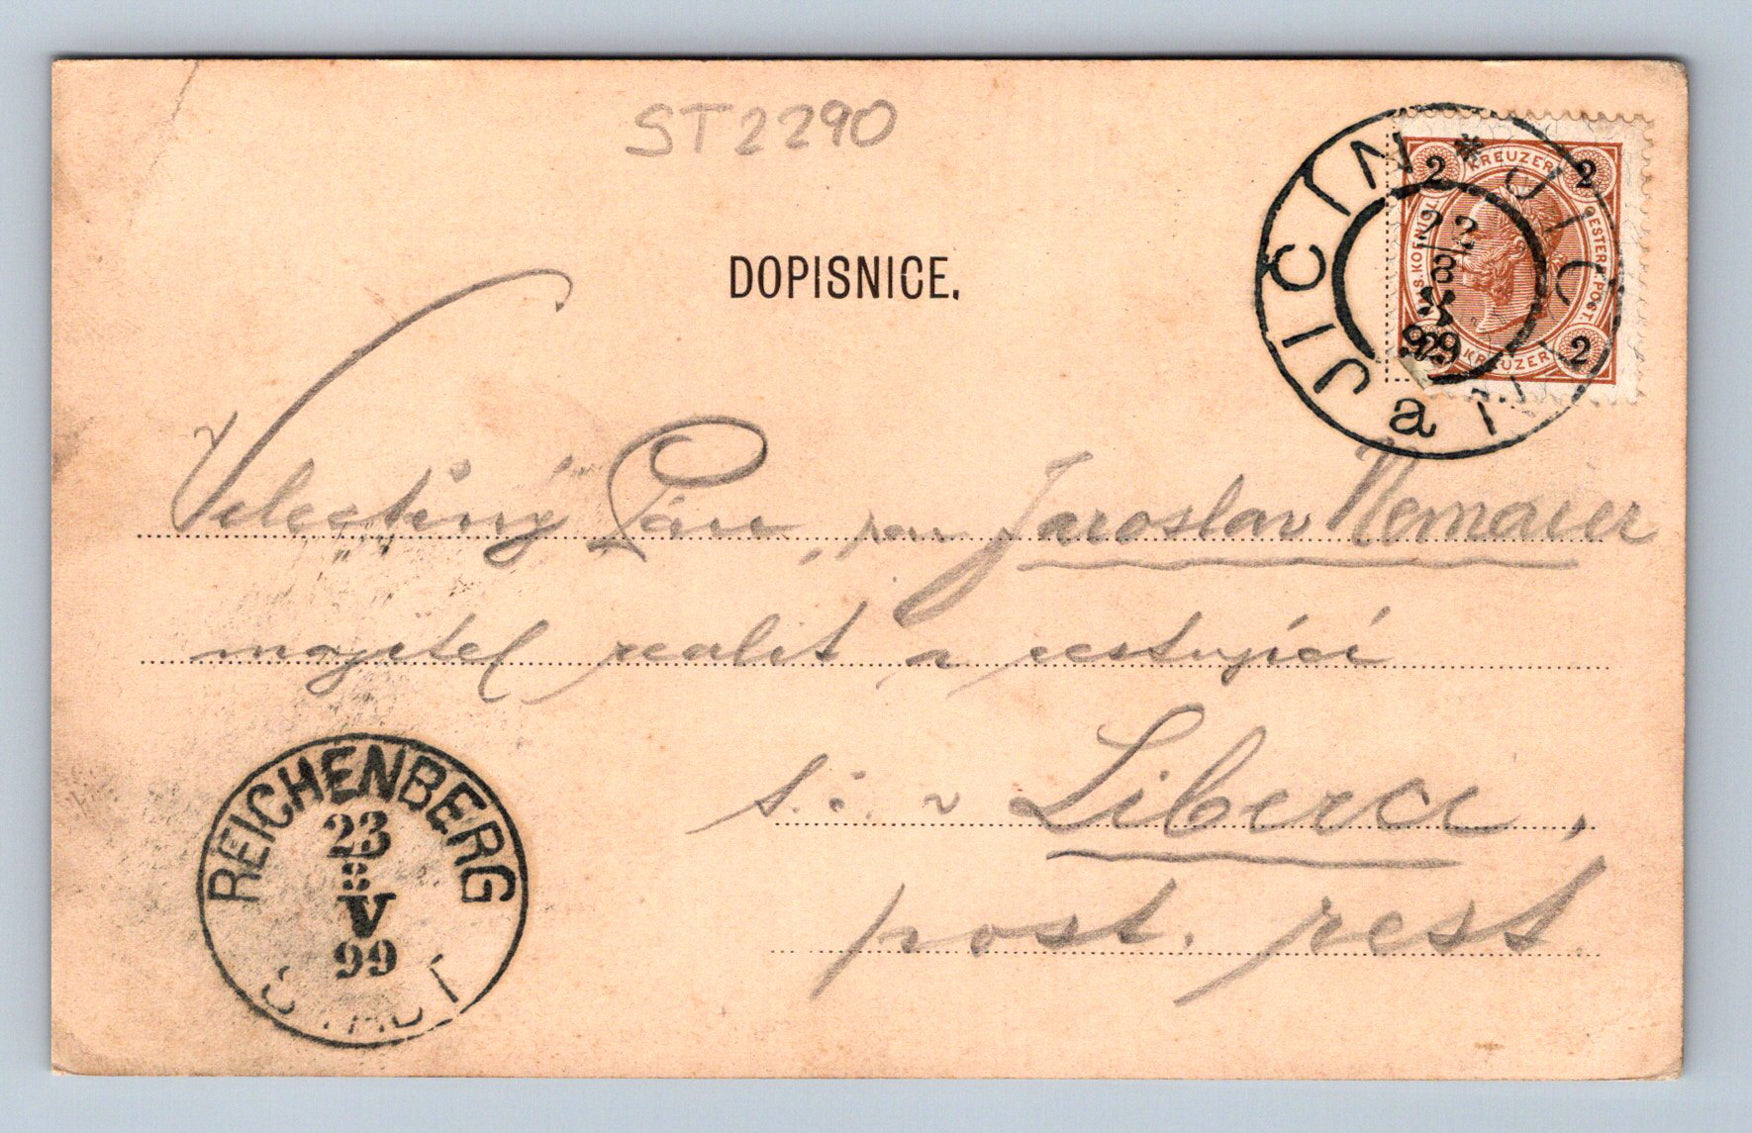 ST2290
DOPISNICE.
JIČIN * JIČIN a
2 KREUZER 2
22
8
99
2 KREUZER 2
Velectěný Pán, pan Jaroslav Nemaier
majitel realit a cestující
t. č. v Liberci,
post. rest
REICHENBERG
23
8
V
99
STADT